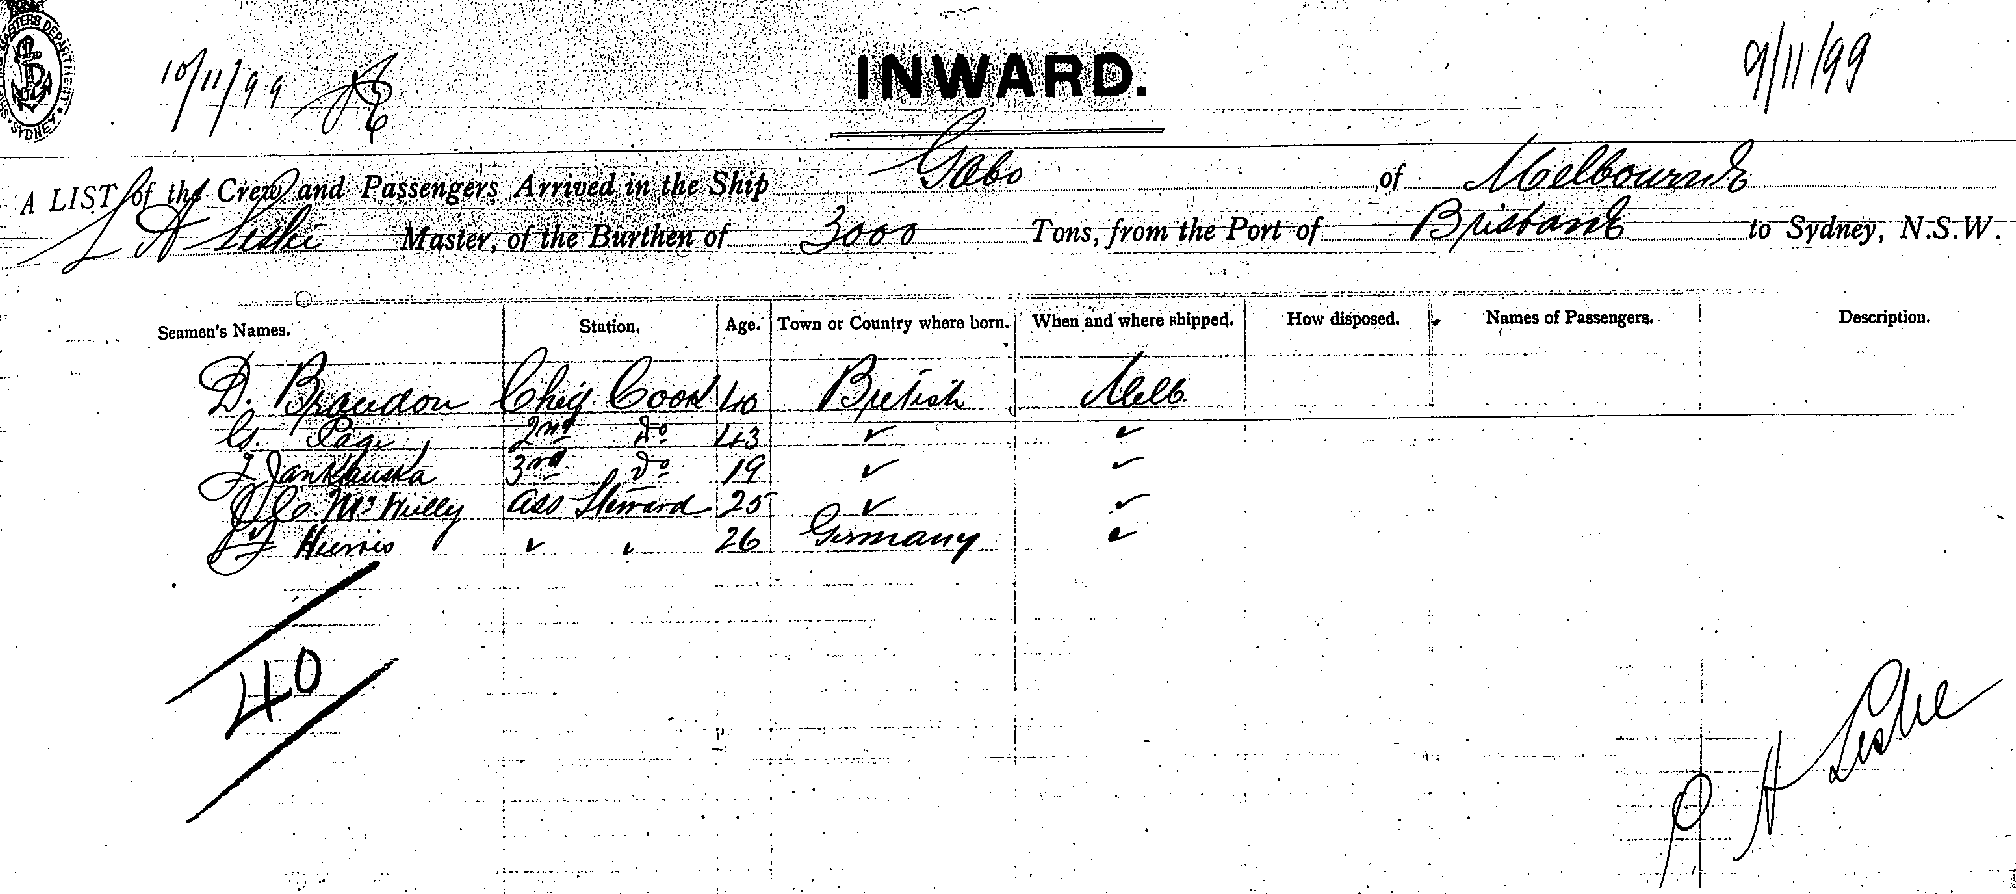 10/11/99
INWARD.
9/11/99
A LIST of the Crew and Passengers Arrived in the Ship Gabo of Melbourne
A Leslie Master, of the Burthen of 3000 Tons, from the Port of Brisbane to Sydney, N.S.W.
Seamen's Names. Station. Age. Town or Country where born. When and where shipped. How disposed. Names of Passengers. Description.
D. Brandon Chief Cook 40 British Melb
G. Page 2nd Do 43 ✓ ✓
3rd Do 19 ✓ ✓
Ass Steward 25 ✓ ✓
✓ ✓ 26 Germany ✓
40
A Leslie
SYDNEY